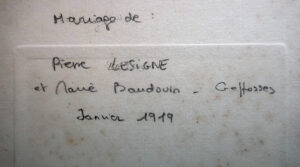 Mariage de :
Pierre LESIGNE
et Marie Baudouin - Geffosses
Janvier 1919